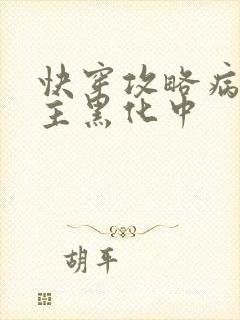 快穿攻略病
主黑化中
胡平